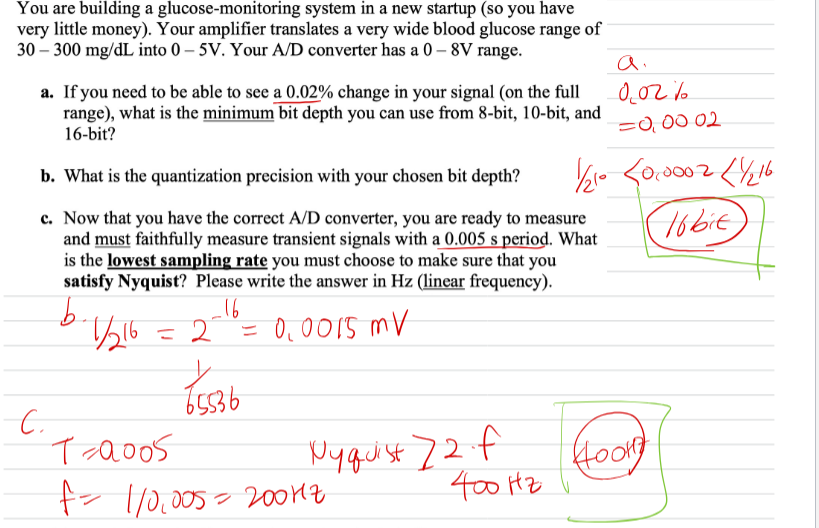 You are building a glucose-monitoring system in a new startup (so you have
very little money). Your amplifier translates a very wide blood glucose range of
30 – 300 mg/dL into 0 – 5V. Your A/D converter has a 0 – 8V range.
a. If you need to be able to see a 0.02% change in your signal (on the full
range), what is the minimum bit depth you can use from 8-bit, 10-bit, and
16-bit?
a.
0,02%
=0,0002
b. What is the quantization precision with your chosen bit depth?
1/2^10 <0,0002 <1/2^16
16bit
c. Now that you have the correct A/D converter, you are ready to measure
and must faithfully measure transient signals with a 0.005 s period. What
is the lowest sampling rate you must choose to make sure that you
satisfy Nyquist? Please write the answer in Hz (linear frequency).
b. 1/2^16 = 2^-16 = 0,0015 mV
1/65536
c.
T=0.005
f= 1/0,005 = 200HZ
Nyquist ≥ 2·f
400 HZ
400HZ